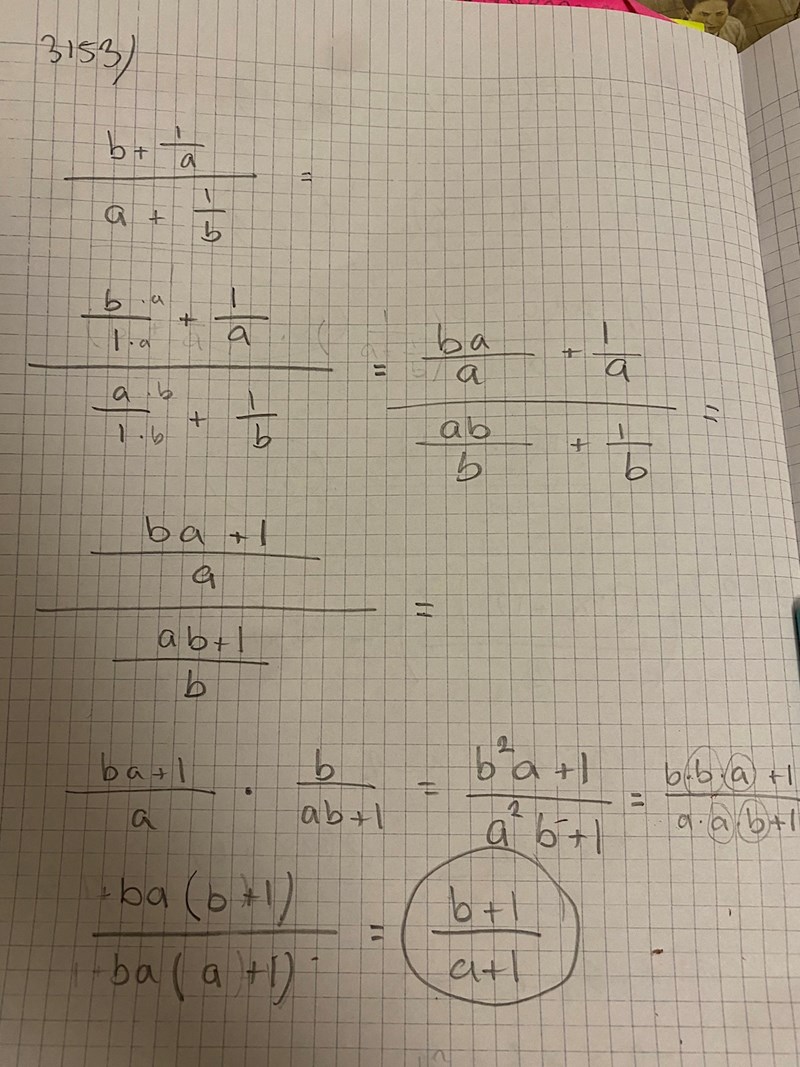 3153)
(b + 1/a) / (a + 1/b) =
((b · a)/(1 · a) + 1/a) / ((a · b)/(1 · b) + 1/b) = (ba/a + 1/a) / (ab/b + 1/b) =
((ba + 1)/a) / ((ab + 1)/b) =
(ba + 1)/a · b/(ab + 1) = (b²a + 1)/(a²b + 1) = (b · b · a + 1)/(a · a · b + 1)
ba(b + 1) / ba(a + 1) = (b + 1)/(a + 1)